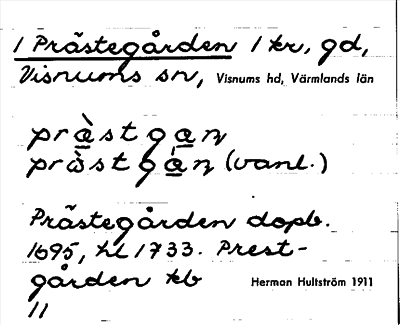 1 Prästegården 1 kr, gd,
Visnums sn, Visnums hd, Värmlands län
pràstgaɲ
pràstgáɲ (vanl.)
Prästegården dopb.
1695, hl 1733. Prest-
gården kb
Herman Hultström 1911
11